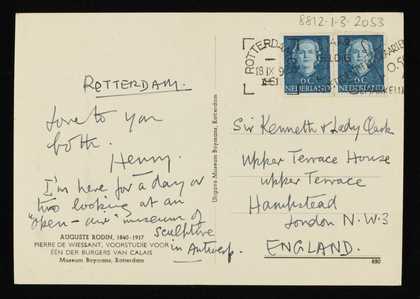 8812-1-3-2053
ROTTERDAM
18 IX 9
NEDERLAND
NEDERLAND
6C
6C
ROTTERDAM.
Love to you
both.
Henry.
I'm here for a day or
two looking at an
"open-air" museum of
sculpture
in Antwerp.
AUGUSTE RODIN, 1840-1917
PIERRE DE WIESSANT, VOORSTUDIE VOOR
ÉÉN DER BURGERS VAN CALAIS
Museum Boymans, Rotterdam
Uitgave Museum Boymans, Rotterdam
Sir Kenneth & Lady Clark
Upper Terrace House
Upper Terrace
Hampstead
London N.W.3
ENGLAND.